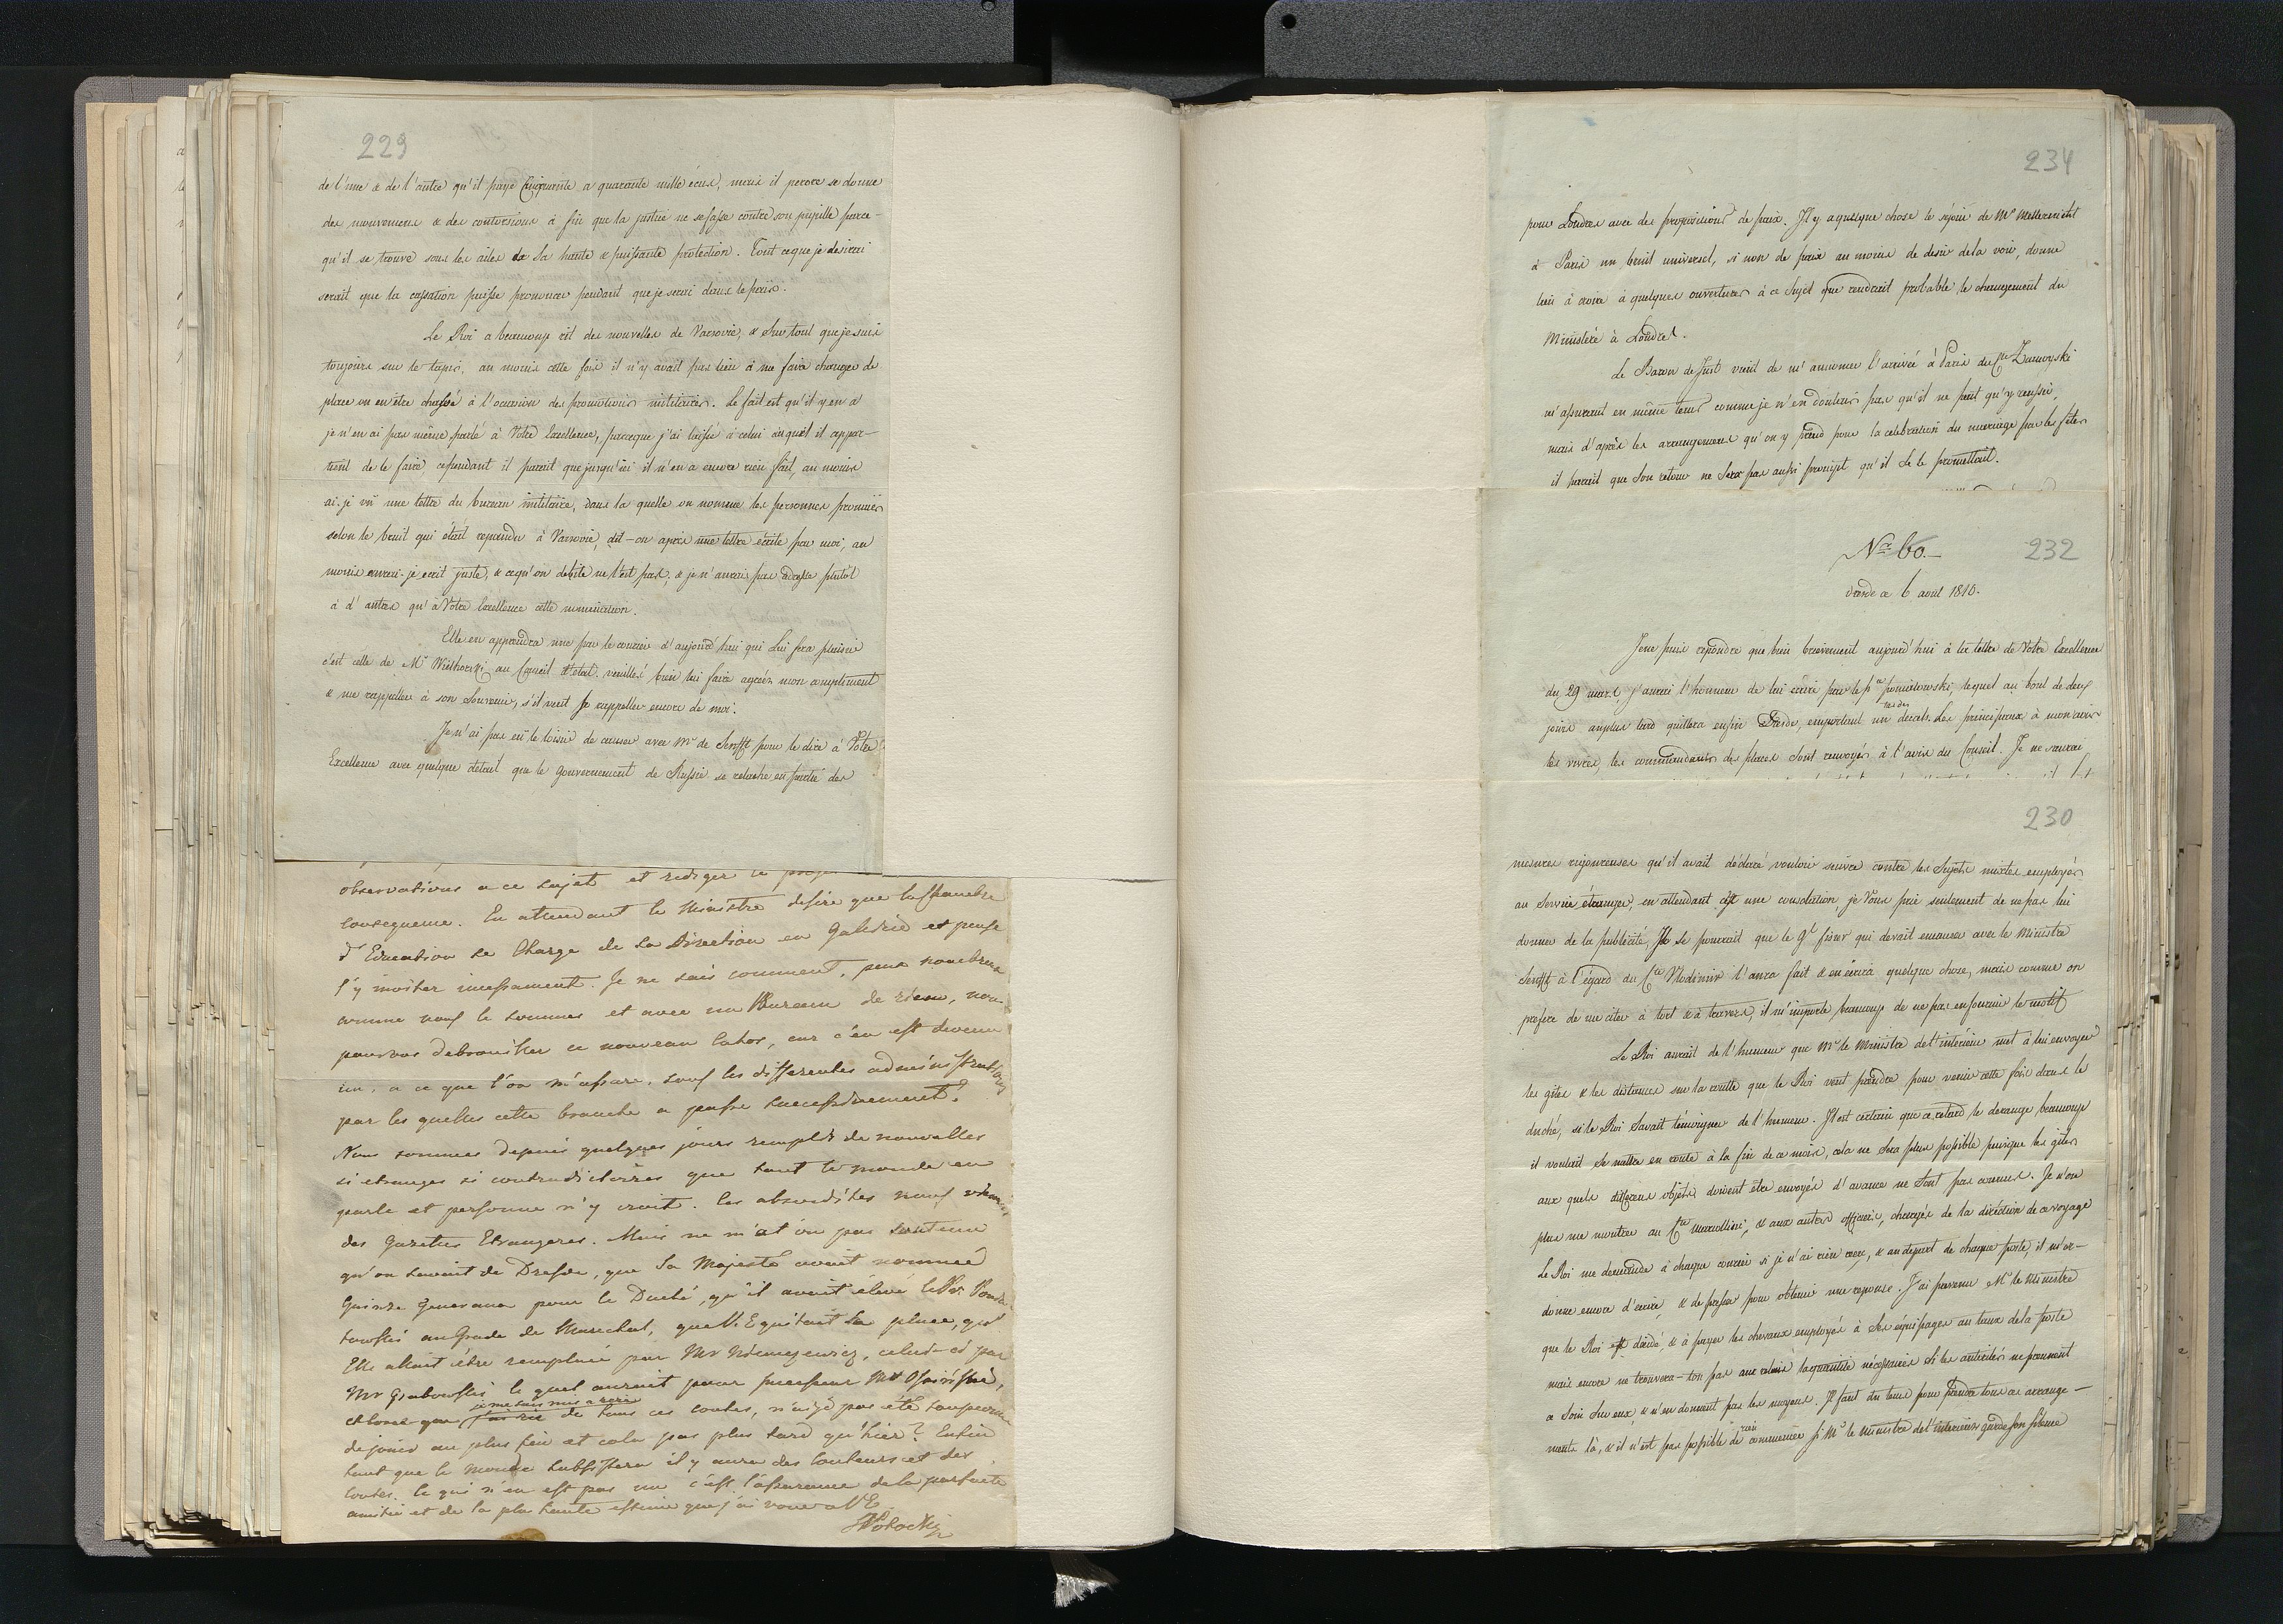 229
de l'une & de l'autre qu'il paye Cinquante a quarante mille écus, mais il perore se donne
des mouvemens & des contorsions à fin que la justice ne se fasse contre son pupille parce-
qu'il se trouve sous les ailes de Sa haute & puissante protection. Tout ce que je desirai
serait que la cassation puisse prononcer pendant que je serai dans le pais.
Le Roi a beaucoup rit des nouvelles de Varsovie, & Sur tout que je suis
toujours sur le tapis, au moins cette fois il n'y avait pas lieu à me faire changer de
place ou en être chassé à l'occasion des promotions militaires. Le fait est qu'il y en a
je n'en ai pas même parlé à Votre Excellence, parceque j'ai laissé à celui auquel il appar-
tient de le faire, cependant il parait que jusqu'ici il n'en a encore rien fait, au moins
ai-je vû une lettre du bureau militaire, dans la quelle on nomme les personnes promues
selon le bruit qui était repandu à Varsovie, dit-on apres une lettre écrite par moi, au
moins aurai-je ecrit juste, & ce qu'on debite ne l'est pas, & je n'aurais pas adressé plutôt
à d'autres qu'à Votre Excellence cette nomination.
Elle en apprendra une par le courier d'aujourd'hui qui Lui fera plaisir
c'est celle de Mr Wielhorski au Conseil d'état. veuillés bien lui faire agréer mon compliment
& me rappeller à son Souvenir, s'il veut se rappeller encore de moi.
Je n'ai pas eû le loisir de causer avec Mr de Senfft pour le dire à Votre
Excellence avec quelque détail que le gouvernement de Russie se relache en partie des
observations a ce sujet et rediger le
consequence. En attendant le Ministre desire que la Chambre
d'Education se Charge de la Direction en Galicie et pense
l'y inviter incessament. Je ne sais comment, peux nombreux
comme nous le sommes et avec un Bureau de rien, nous
pourrons debrouiller ce nouveau cahos, car c'en est devenu
un, a ce que l'on m'assure, sous les differentes administrations
par les quelles cette branche a passé successivement.
Nous sommes depuis quelques jours remplis de nouvelles
si etranges si contradictoires que tout le monde en
parle et personne n'y croit. les absurdités nous viennent
des Gazettes Etrangeres. Mais ne m'at'on pas soutenu
qu'on savait de Dresde, que Sa Majesté avait nommé
Quinze Generaux pour le Duché, qu'il avait élevé le Pce Ponia-
towski au Grade de Marechal, que V.E quitait Sa place, qu'
Elle allait être remplacé par Mr Niemcewicz, celui-ci par
Mr Grabowski le quel auroit pour successeur Mr Osinski,
je me suis mis a rire
de tous ces contes, n'ai-je pas été
de jouer au plus fin et cela pas plus tard qu'hier? Enfin
tant que le monde subsistera il y aura des conteurs et des
contes. Ce qui n'en est pas un c'est l'assurance de la parfaite
amitié et de la plus haute estime que j'ai voué a V.E.
SPotocki
234
pour Londres avec des propositions de paix. Il y a quelque chose le séjour de Mr Metternicht
à Paris un bruit universel, si non de paix au moins de desir de la voir, donne
lieu à croire à quelques ouvertures à ce Sujet que rendrait probable le changement du
Ministère à Londres.
Le Baron de Just vient de m'annoncer l'arrivée à Paris du Cte Zamoyski
m'assurant en même tems comme je n'en doutais pas qu'il ne peut qu'y reussir,
mais d'après les arrangemens qu'on y prend pour la celebration du mariage par les fêtes
il parait que Son retour ne Sera pas aussi prompt qu'il Se le promettait.
Nro 60.
232
Dresde ce 6 avril 1810.
Je ne puis repondre que bien brievement aujourd'hui à la lettre de Votre Excellence
du 29 mars, j'aurai l'honneur de lui écrire par le pce poniatowski, lequel au bout de deux
jours au plus tard quittera enfin Dresde, emportant un decrets. Les principaux à mon avis
les vivres, les commendans des places Sont renvoyés à l'avis du Conseil. Je ne saurai
230
mesures rigoureuses qu'il avait déclaré vouloir suivre contre les Sujets mixtes employés
au Service étranger, en attendant c'est une consolation, je Vous prie seulement de ne pas lui
donner de la publicité, Il se pourrait que le Gl fiszer qui devait en causer avec le Ministre
Senfft à l'égard du Cte Wlodimir l'aura fait & en écrira quelque chose, mais comme on
prefere de me citer à tort & à travers, il m'importe beaucoup de ne pas en fournir le motif
Le Roi aurait de l'humeur que Mr le Ministre de l'intérieur met à lui envoyer
les gites & les distances sur la route que le Roi veut prendre pour venir cette fois dans le
duché, si le Roi Savait témoigner de l'humeur. Il est certain que ce retard le derange beaucoup
il voulait Se mettre en route à la fin de ce mois, cela ne Sera plus possible puisque les gites
aux quels differens objets doivent être envoyés d'avance ne Sont pas connus. Je n'ose
plus me montrer au Cte Marcollini, & aux autres officiers, chargés de la direction de ce voyage
Le Roi me demande à chaque courier si je n'ai rien reçu, & au depart de chaque poste il m'or-
donne encore d'écrire, & de presser pour obtenir une reponse. J'ai prevenu Mr le Ministre
que le Roi est decidé, & à payer les chevaux employés à Ses équipages au taux de la poste
mais encore ne trouvera-ton pas aux relais la quantité nécessaire si les autorités ne prennent
ce Soin Sur eux, & n'en donnent pas les moyens. Il faut du tems pour prendre tous ces arrange-
mens là, & il n'est pas possible de rien commencer si Mr le Ministre de l'interieur garde son silence